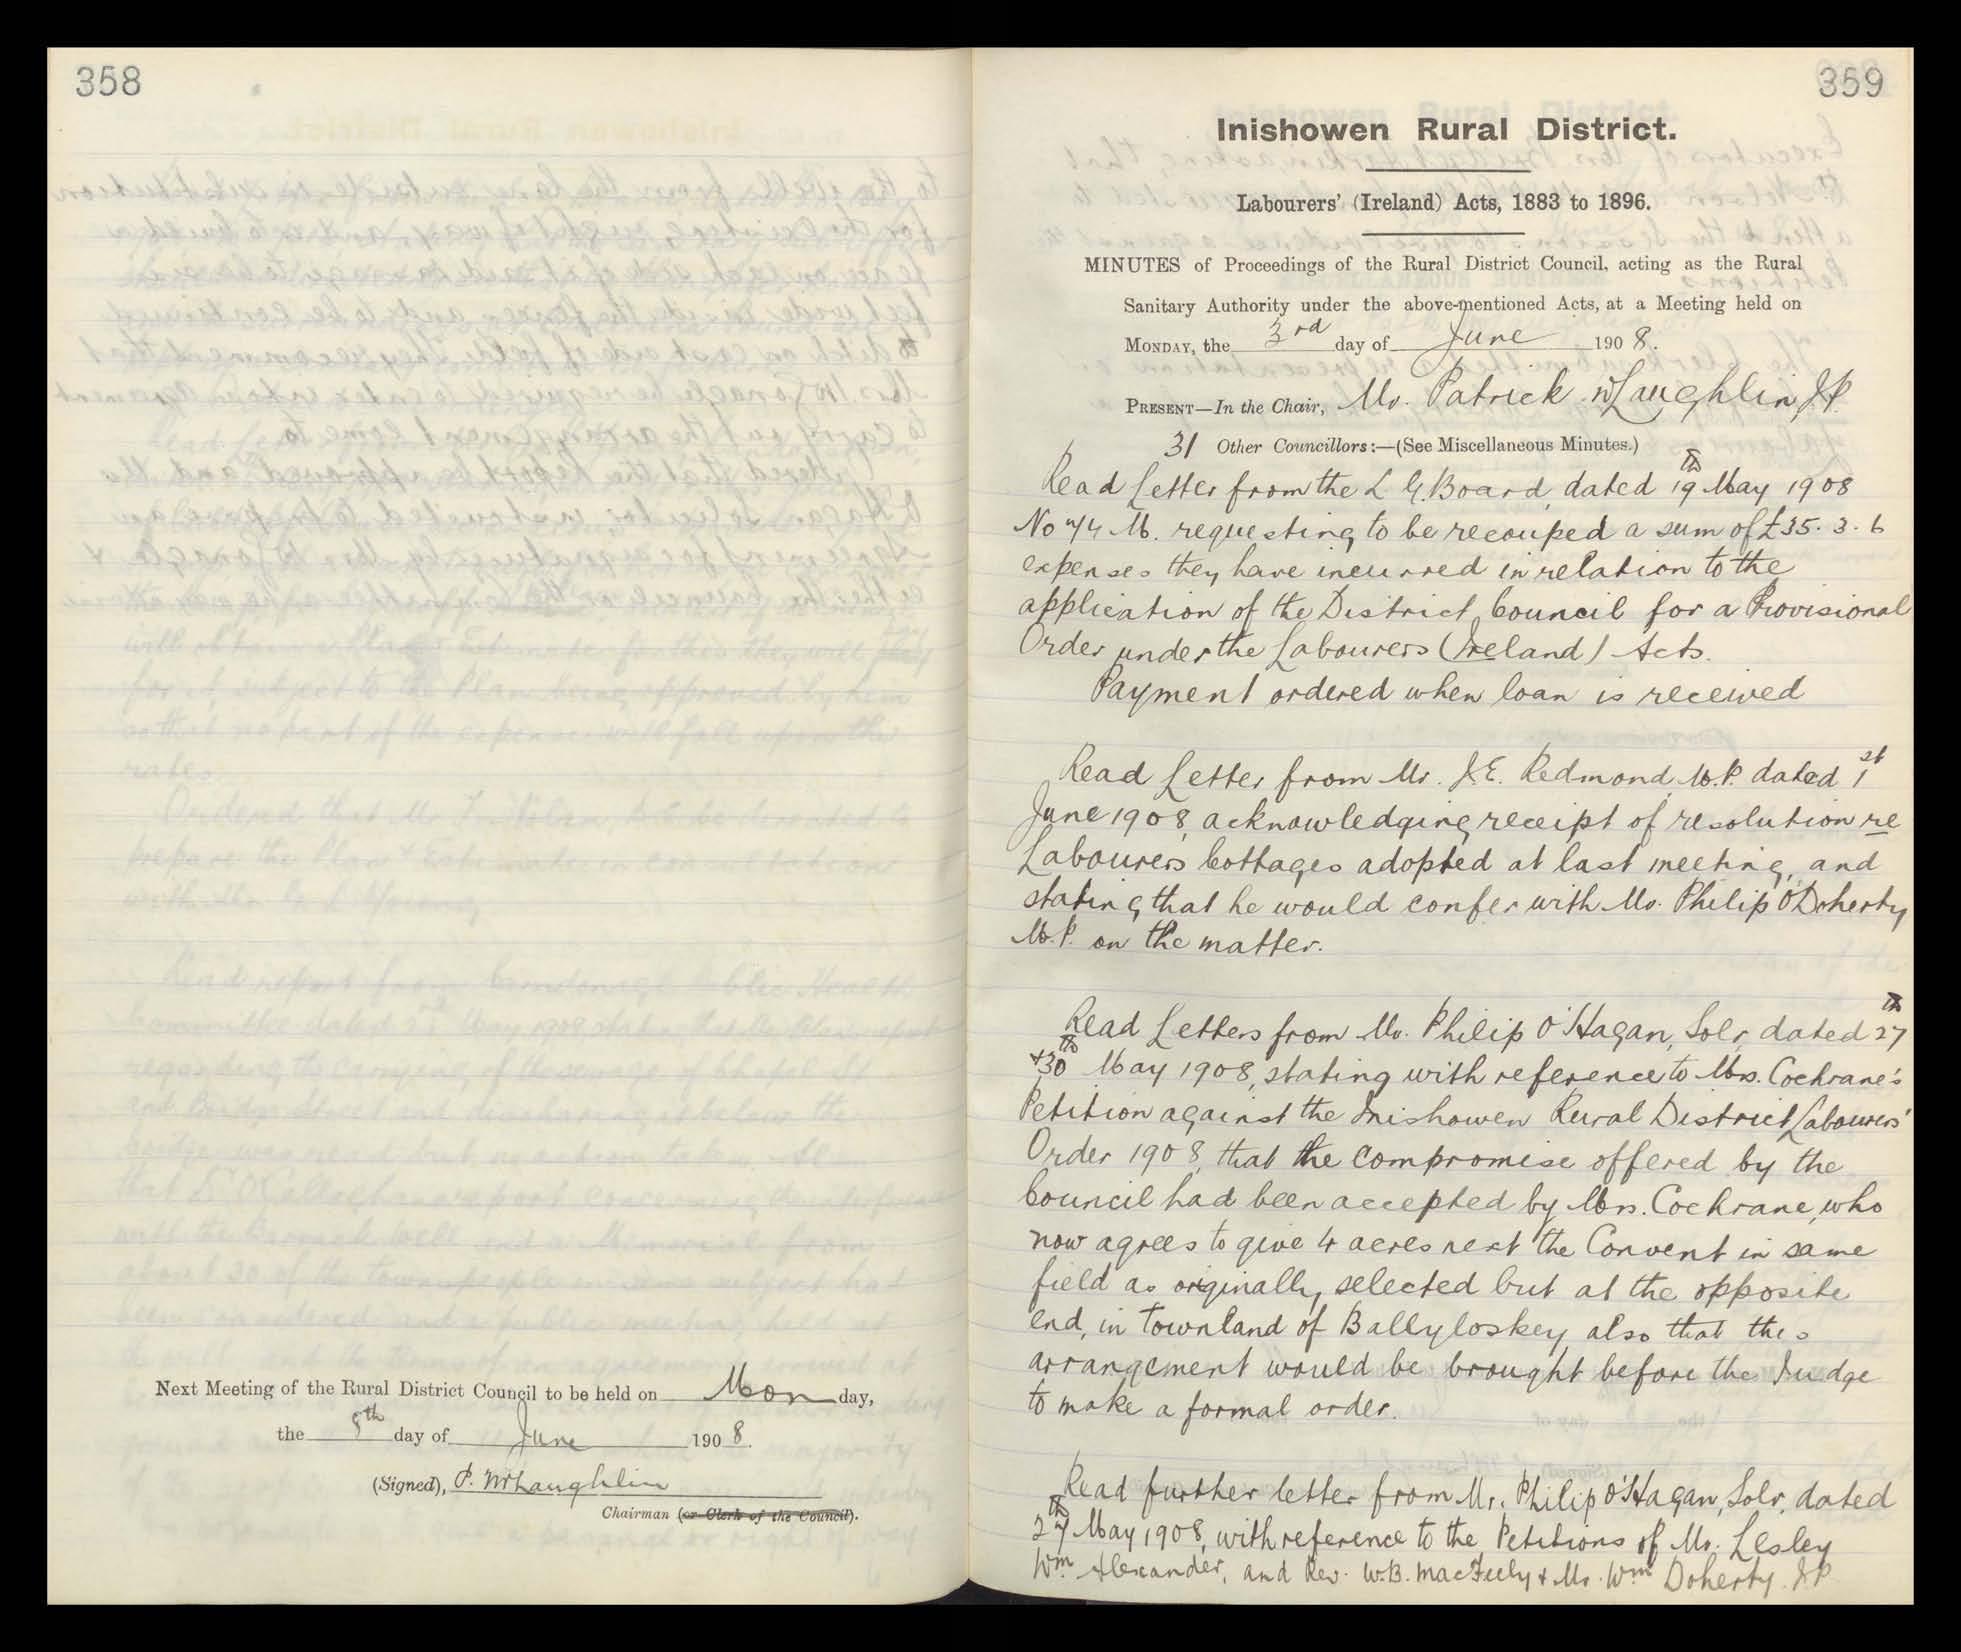 358
Next Meeting of the Rural District Council to be held on Mon day,
the 8th day of June 190 8.
(Signed), P. McLaughlin
Chairman (or Clerk of the Council).
359
Inishowen Rural District.
Labourers' (Ireland) Acts, 1883 to 1896.
MINUTES of Proceedings of the Rural District Council, acting as the Rural
Sanitary Authority under the above-mentioned Acts, at a Meeting held on
MONDAY, the 3rd day of June 190 8.
PRESENT—In the Chair, Mr. Patrick McLaughlin, J.P.
31 Other Councillors:—(See Miscellaneous Minutes.)
Read Letter from the L. G. Board, dated 19th May 1908
No M. requesting to be recouped a sum of £35. 3. 6
expenses they have incurred in relation to the
application of the District Council for a Provisional
Order under the Labourers (Ireland) Acts.
Payment ordered when loan is received
Read Letter from Mr. J.E. Redmond, M.P. dated 1st
June 1908, acknowledging receipt of resolution re
Labourers Cottages adopted at last meeting, and
stating that he would confer with Mr. Philip O'Doherty
M.P. on the matter.
Read Letters from Mr. Philip O'Hagan, Solr, dated 27th
+30th May 1908, stating with reference to Mrs. Cochrane's
Petition against the Inishowen Rural District Labourers'
Order 1908, that the compromise offered by the
Council had been accepted by Mrs. Cochrane, who
now agrees to give 4 acres next the Convent in same
field as originally selected but at the opposite
end, in townland of Ballyloskey also that this
arrangement would be brought before the Judge
to make a formal order.
Read further letter from Mr. Philip O'Hagan, Solr, dated
27th May 1908, with reference to the Petitions of Mr. Lesley
Wm Alexander, and Rev. W.B. MacFeely & Mr. Wm Doherty. J.P.